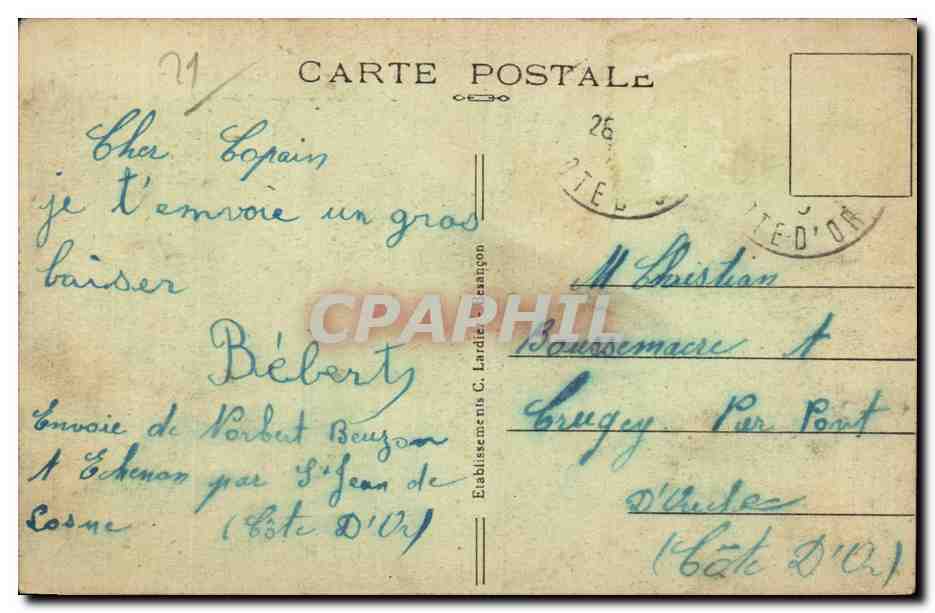 21
CARTE POSTALE
26
TE D
TE-D'OR
Cher Copain
je t'envoie un gros
baiser
Bébert
Envoie de Norbert Beuzon
A Echenon par St Jean de
Losne (Côte D'Or)
Etablissements C. Lardier - Besançon
M Christian
A
Crugey Par Pont
D'Ouche
(Côte D'Or)
CPAPHIL